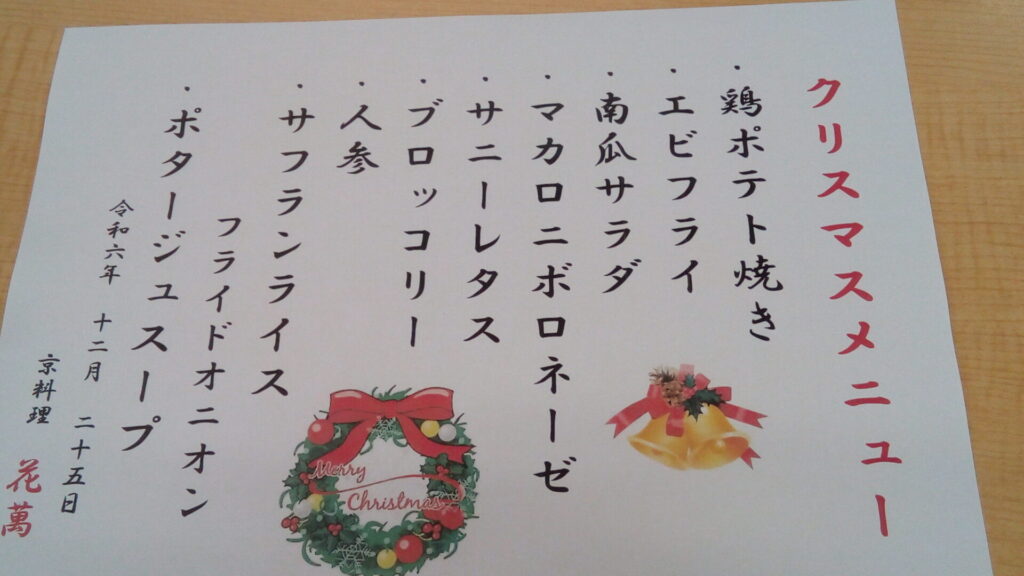 クリスマスメニュー
・鶏ポテト焼き
・エビフライ
・南瓜サラダ
・マカロニボロネーゼ
・サニーレタス
・ブロッコリー
・人参
・サフランライス
フライドオニオン
・ポタージュスープ
令和六年 十二月 二十五日
京料理 花萬
Merry
Christmas